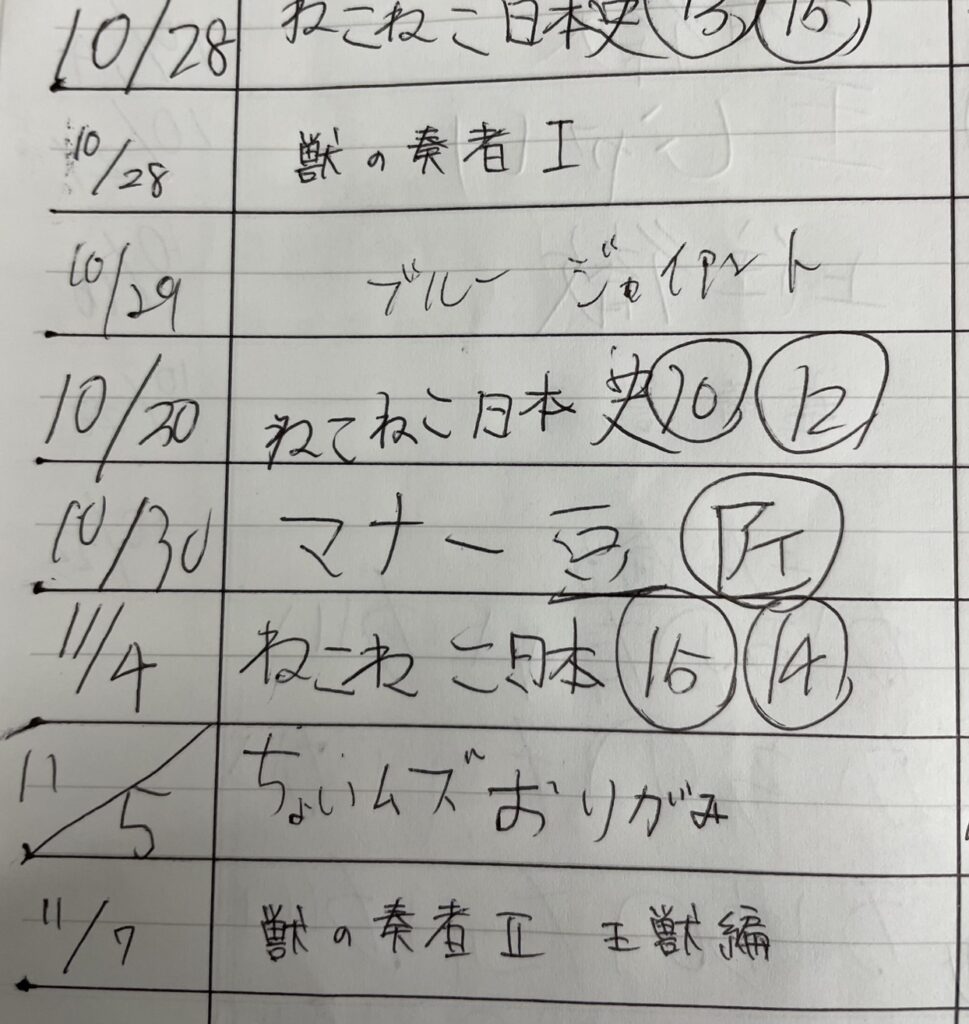 10/28 ねこねこ日本史 ⑬ ⑮
10/28 獣の奏者 I
10/29 ブルージャイアント
10/30 ねこねこ日本史 ⑩ ⑫
10/30 マナー豆
11/4 ねこねこ日本 ⑯ ⑭
11/5 ちょいムズおりがみ
11/7 獣の奏者 II 王獣編